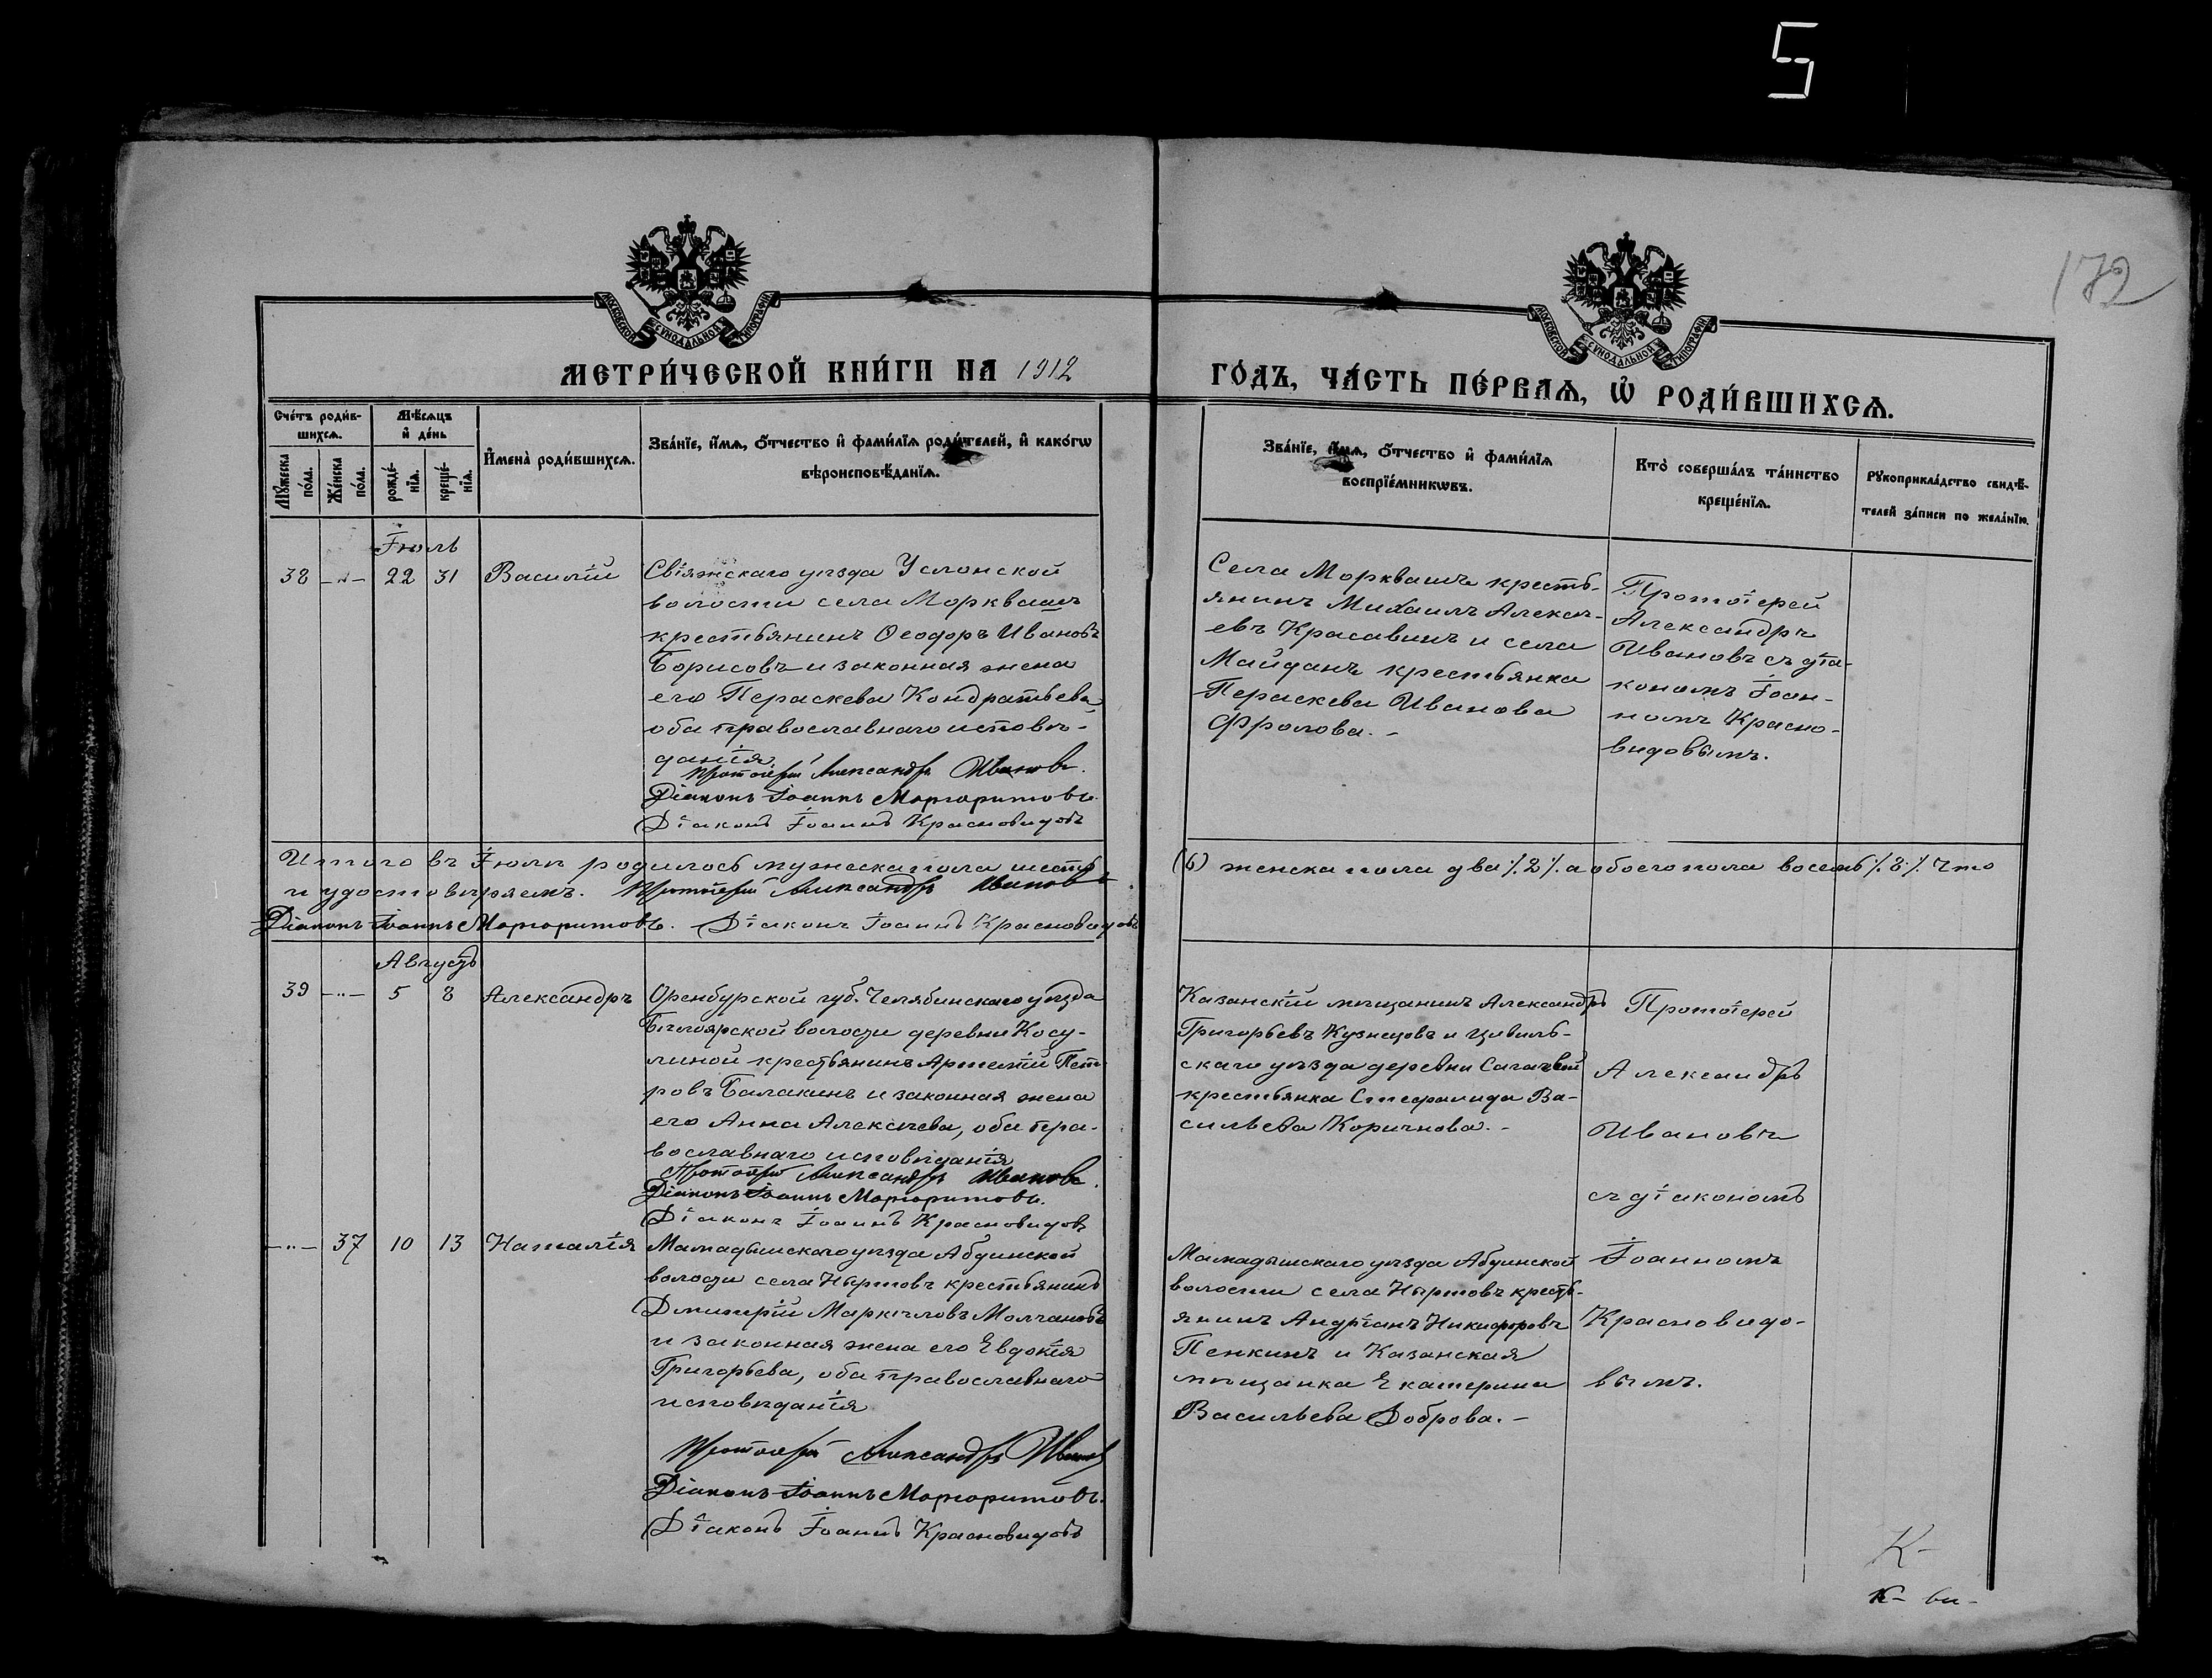 5
172
МОСКОВСКОЙ СУНОДАЛЬНОЙ ТИПОГРАФІИ
МОСКОВСКОЙ СУНОДАЛЬНОЙ ТИПОГРАФІИ
МЕТРИ́ЧЕСКОЙ КНИ́ГИ НА 1912 ГО́ДЪ, ЧА́СТЬ ПЕ́РВАѦ, Ѡ҆ РОДИ́ВШИХСѦ.
Сче́тъ роди́в-
шихсѧ.
Мѣ́сѧцъ
и҆ де́нь
Мꙋ́жеска
по́ла.
Же́нска
по́ла.
рожде́-
нїѧ.
креще́-
нїѧ.
И҆мена̀ роди́вшихсѧ.
Зва́нїе, и҆́мѧ, ѻ҆́тчество и҆ фами́лїѧ роди́телей, и҆ како́гѡ
вѣроисповѣ́данїѧ.
Зва́нїе, и҆́мѧ, ѻ҆́тчество и҆ фами́лїѧ
воспрїе́мникѡвъ.
Кто̀ соверша́лъ та́инство
креще́нїѧ.
Рꙋкоприкла́дство свидѣ́-
телей за́писи по жела́нїю.
Іюль
38 -„- 22 31 Василій
Свіяжскаго уѣзда Услонской
волости села Моркваш
крестьянинъ Ѳеодоръ Ивановъ
Борисовъ и законная жена
его Параскева Кондратьева
оба православнаго исповѣ-
данія
Протоіерей Александръ Ивановъ.
Діаконъ Іоаннъ Маргаритовъ.
Діаконъ Іоаннъ Красновидовъ
Села Моркваш крестъ-
янинъ Михаилъ Алексѣ-
евъ Красавинъ и села
Майданъ крестьянка
Параскева Иванова
Фролова. -
Протоіерей
Александръ
Ивановъ съ діа-
кономъ Іоан-
номъ Красно-
видовымъ.
Итого въ Іюлѣ родилось мужеска пола шесть (6) женска пола два ٪2٪ а обоего пола восемь ٪8٪ Что
и удостовѣряемъ. Протоіерей Александръ Ивановъ
Діаконъ Іоаннъ Маргаритовъ. Діаконъ Іоаннъ Красновидовъ
Августъ
39 -„- 5 8 Александръ
Оренбурской губ. Челябинскаго уѣзда
Бѣлоярской волости деревни Косу-
линой крестьянинъ Артемій Пет-
ровъ Балакинъ и законная жена
его Анна Алексѣева, оба пра-
вославнаго исповѣданія
Протоіерей Александръ Ивановъ.
Діаконъ Іоаннъ Маргаритовъ.
Діаконъ Іоаннъ Красновидовъ
Казанскій мѣщанинъ Александръ
Григорьевъ Кузнецовъ и Цивиль-
скаго уѣзда деревни
крестьянка Стефанида Ва-
сильева Коричнова. -
Протоіерей
Александръ
Ивановъ
съ діакономъ
Іоанномъ
Красновидо-
вымъ.
-„- 37 10 13 Наталія
Мамадышскаго уѣзда Абдинской
волости села Ныртовъ крестьянинъ
Дмитрій Маркѣловъ Молчановъ
и законная жена его Евдокія
Григорьева, оба православнаго
исповѣданія
Протоіерей Александръ Ивановъ
Діаконъ Іоаннъ Маргаритовъ.
Діаконъ Іоаннъ Красновидовъ
Мамадышскаго уѣзда Абдинской
волости села Ныртовъ кресть-
янинъ Андріанъ Никифоровъ
Пенкинъ и Казанская
мѣщанка Екатерина
Васильева Доброва. -
К-
К- ви-